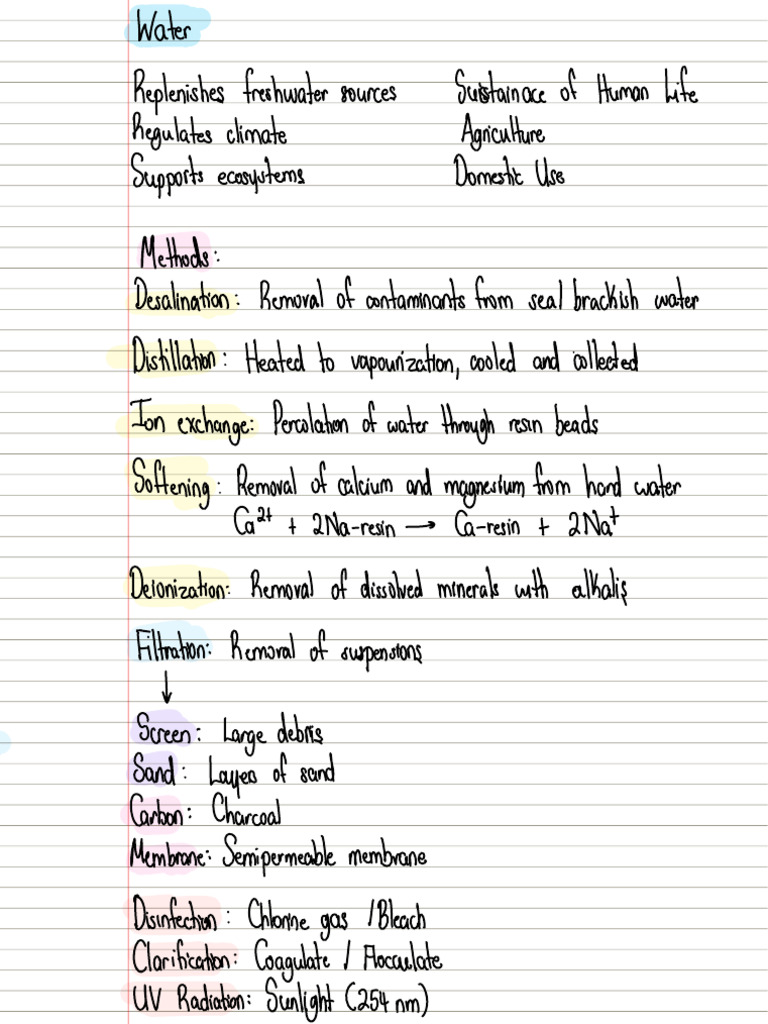 Water
Replenishes freshwater sources
Sustainace of Human Life
Regulates climate
Agriculture
Supports ecosystems
Domestic Use
Methods:
Desalination: Removal of contaminants from sea/ brackish water
Distillation: Heated to vapourization, cooled and collected
Ion exchange: Percolation of water through resin beads
Softening: Removal of calcium and magnesium from hard water
Ca²⁺ + 2Na-resin → Ca-resin + 2Na⁺
Deionization: Removal of dissolved minerals with alkalis
Filtration: Removal of suspensions
↓
Screen: Large debris
Sand: Layers of sand
Carbon: Charcoal
Membrane: Semipermeable membrane
Disinfection: Chlorine gas /Bleach
Clarification: Coagulate / Flocculate
UV Radiation: Sunlight (254 nm)